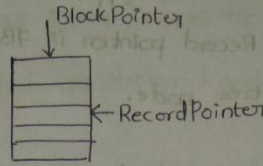 BlockPointer
RecordPointer